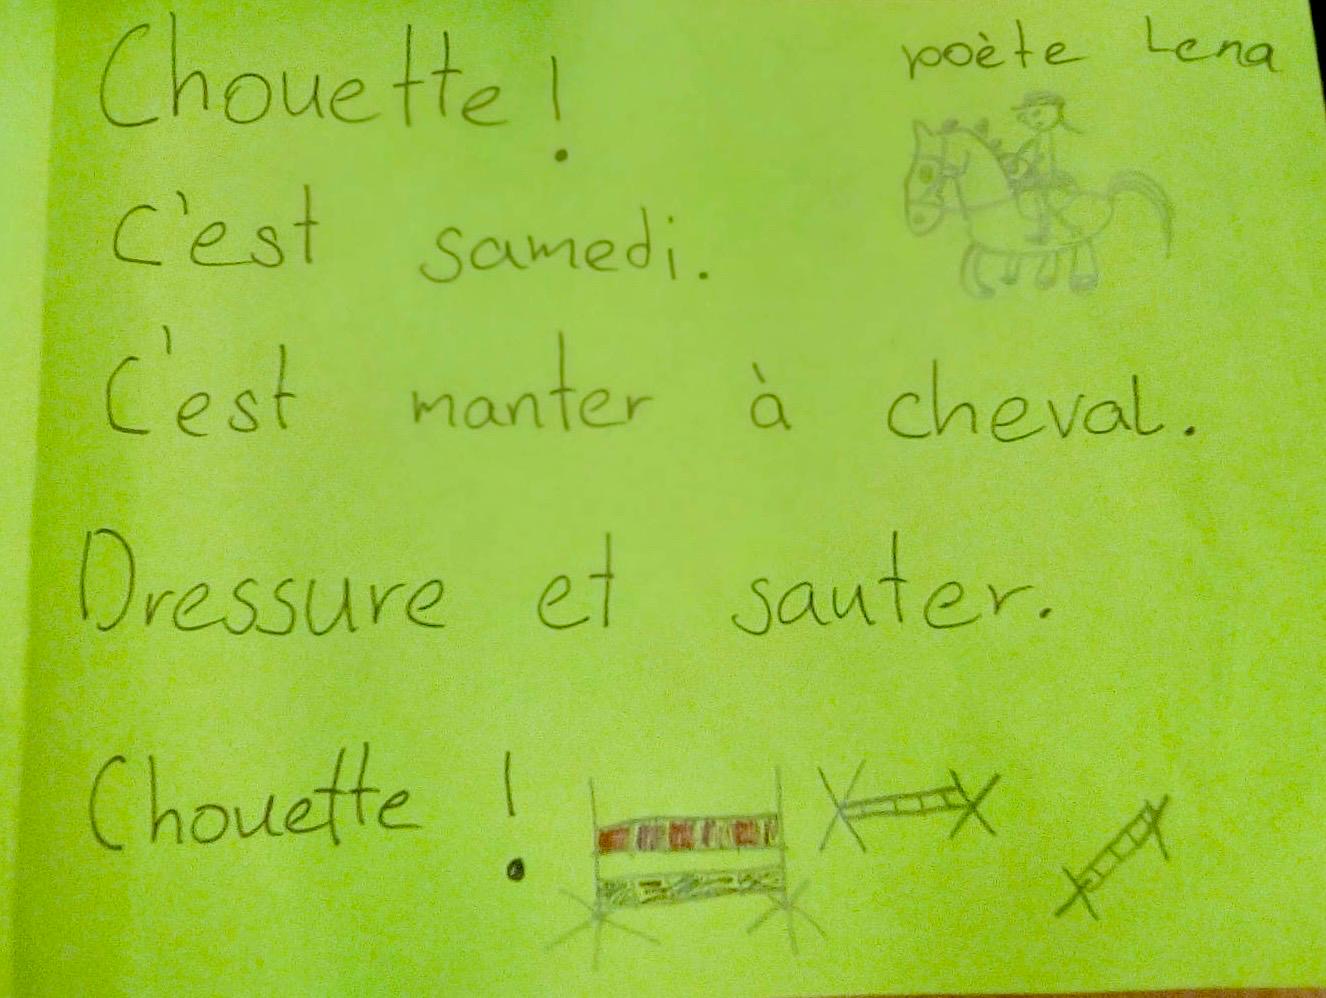 poète Lena
Chouette!
C'est samedi.
C'est manter à cheval.
Dressure et sauter.
Chouette !